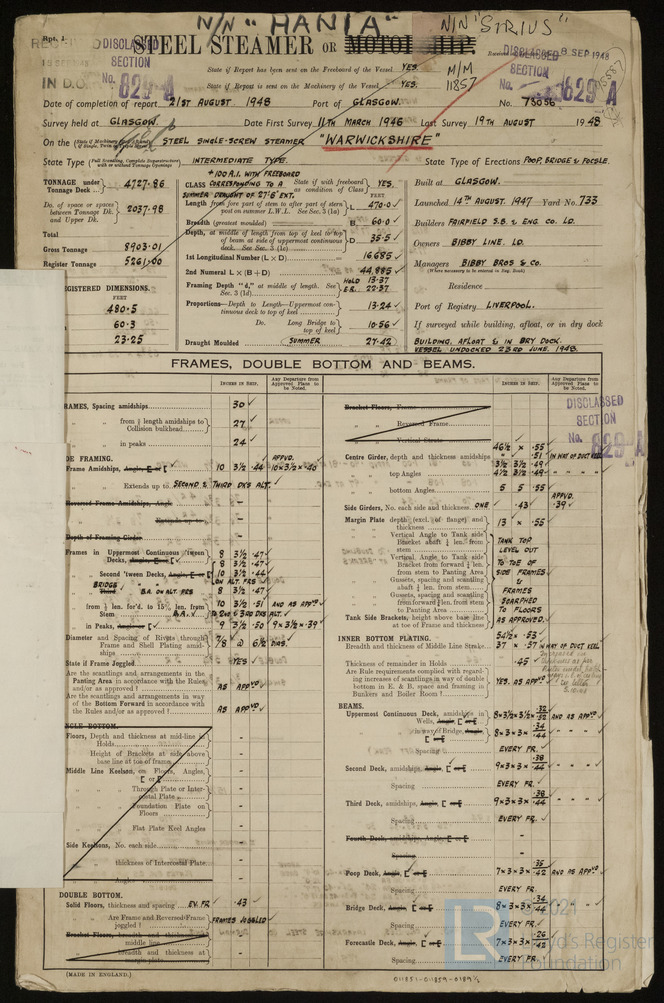 N/N "HANIA" N/N "SIRIUS"
Rpt. 1.
DISCLASSED SECTION No. 829-A
STEEL STEAMER OR MOTOR SHIP.
Received 8 SEP 1948
DISCLASSED SECTION No. 829-A
IN D.O.
State if Report has been sent on the Freeboard of the Vessel YES.
State if Report is sent on the Machinery of the Vessel YES.
M/M 11857
Date of completion of report 21ST AUGUST 1948 Port of GLASGOW. No. 73056
Survey held at GLASGOW. Date First Survey 11TH MARCH 1946 Last Survey 19TH AUGUST 1948
On the STEEL SINGLE-SCREW STEAMER "WARWICKSHIRE"
State Type INTERMEDIATE TYPE. State Type of Erections POOP, BRIDGE & FOCSLE.
TONNAGE under Tonnage Deck 4727.86
Do. of space or spaces between Tonnage Dk. and Upper Dk. 2037.98
Total
Gross Tonnage 8903.01
Register Tonnage 5261.00
REGISTERED DIMENSIONS.
FEET
480.5
60.3
23.25
CLASS +100 A.I. WITH FREEBOARD CORRESPONDING TO A SUMMER DRAUGHT OF 27'5" EXT.
State if with freeboard as condition of Class YES.
FEET
Length from fore part of stem to after part of stern post on summer L.W.L. See Sec. 3 (1a) L 470.0
Breadth (greatest moulded) B 60.0
Depth, at middle of length from top of keel to top of beam at side of uppermost continuous deck. See Sec. 3 (1c) D 35.5
1st Longitudinal Number (L × D) 16,685
2nd Numeral L × (B + D) 44,885
Framing Depth "d," at middle of length. See Sec. 3 (1d) HOLD 13.37
E.R. 22.37
Proportions—Depth to Length—Uppermost continuous deck to top of keel 13.24
Do. Long Bridge to top of keel 10.56
Draught Moulded SUMMER 27.42
Built at GLASGOW.
Launched 14TH AUGUST, 1947 Yard No. 733
Builders FAIRFIELD S.B. & ENG. CO. LD.
Owners BIBBY LINE. LD.
Managers BIBBY BROS & CO.
(Where necessary to be entered in Reg. Book)
Residence
Port of Registry LIVERPOOL.
If surveyed while building, afloat, or in dry dock
BUILDING, AFLOAT & IN DRY DOCK.
VESSEL UNDOCKED 23RD JUNE, 1948.
FRAMES, DOUBLE BOTTOM AND BEAMS.
INCHES IN SHIP. Any Departure from Approved Plans to be Noted.
FRAMES, Spacing amidships 30
from 1/5 length amidships to Collision bulkhead 27
in peaks 24
SIDE FRAMING.
Frame Amidships, Angle, E or [ 10 3½ .44 APPVD. 10×3½×.40
Extends up to SECOND & THIRD DKS ALT.
Reversed Frame Amidships, Angle -
Extends up to -
Depth of Framing Girder -
Frames in Uppermost Continuous 'tween Decks, Angle, E or [ 8 3½ .47
8 3½ .47
Second 'tween Decks, Angle, E or [ 10 3½ .44
ON ALT. FRS
BRIDGE Third B.A. ON ALT. FRS 8 3½ .47
from 1/5 len. for'd. to 15% len. from Stem B.A. 10 3½ .51 AND AS APPVD
TO 2ND & 3RD DKS ALT.
in Peaks, Angle or [ 9 3½ .50 9×3½×.39
Diameter and Spacing of Rivets through Frame and Shell Plating amidships 7/8 @ 6½ DIAS.
State if Frame Joggled YES
Are the scantlings and arrangements in the Panting Area in accordance with the Rules and/or as approved? AS APPVD
Are the scantlings and arrangements in way of the Bottom Forward in accordance with the Rules and/or as approved? AS APPVD
SINGLE BOTTOM.
Floors, Depth and thickness at mid-line in Holds -
Height of Brackets at side above base line at toe of frame -
Middle Line Keelson, on Floors, Angles, [ or E -
Through Plate or Intercostal Plate -
Foundation Plate on Floors -
Flat Plate Keel Angles -
Side Keelsons, No. each side -
thickness of Intercostal Plate -
Angles -
DOUBLE BOTTOM.
Solid Floors, thickness and spacing EV. FR. .43
Are Frame and Reversed Frame joggled? FRAMES JOGGLED
Bracket Floors, breadth and thickness at middle line -
breadth and thickness at margin plate -
INCHES IN SHIP. Any Departure from Approved Plans to be Noted.
Bracket Floors, Frame
Reversed Frame
Vertical Struts
Centre Girder, depth and thickness amidships 46½ × .55
" .51 IN WAY OF DUCT KEEL
top Angles 3½ 3½ .49
4½ 3½ .49 " " "
bottom Angles 5 5 .55
Side Girders, No. each side and thickness ONE .43 APPVD. .39
Margin Plate depth (excl. of flange) and thickness 13 × .55
Vertical Angle to Tank side Bracket abaft 1/5 len. from stem
Vertical Angle to Tank side Bracket from forward 1/5 len. from stem to Panting Area
Gussets, spacing and scantling abaft 1/5 len. from stem
Gussets, spacing and scantling from forward 1/5 len. from stem to Panting Area
Tank Side Brackets, height above base line at toe of Frame and thickness
TANK TOP LEVEL OUT TO TOE OF SIDE FRAMES & FRAMES SCARPHED TO FLOORS AS APPROVED.
INNER BOTTOM PLATING.
Breadth and thickness of Middle Line Strake 54½ × .53
37 × .57 IN WAY OF DUCT KEEL
Thickness of remainder in Holds .45
Are Rule requirements complied with regarding increases of scantlings in way of double bottom in E. & B. space and framing in Bunkers and Boiler Room? YES. AS APPVD
BEAMS.
Uppermost Continuous Deck, amidships in Wells, Angle, [ or E 8×3½×3½×.32/.52 AND AS APPVD
in way of Bridge, Angle, [ or E 8×3×3×.34/.44 " " "
Spacing EVERY FR.
Second Deck, amidships, Angle, [ or E 9×3×3×.38/.44 " " "
Spacing EVERY FR.
Third Deck, amidships, Angle, [ or E 9×3×3×.38/.44 " " "
Spacing EVERY FR.
Fourth Deck, amidships, Angle, [ or E -
Spacing -
Poop Deck, Angle, [ or E 7×3×3×.35/.42 AND AS APPVD
Spacing EVERY FR.
Bridge Deck, Angle, [ or E 8×3×3×.34/.44 " " "
Spacing EVERY FR.
Forecastle Deck, Angle, [ or E 7×3×3×.26/.42 " " "
Spacing EVERY FR.
DISCLASSED SECTION No. 829-A
(MADE IN ENGLAND.)
011851-011859-0189½
LR © 2021
Lloyd's Register
Foundation